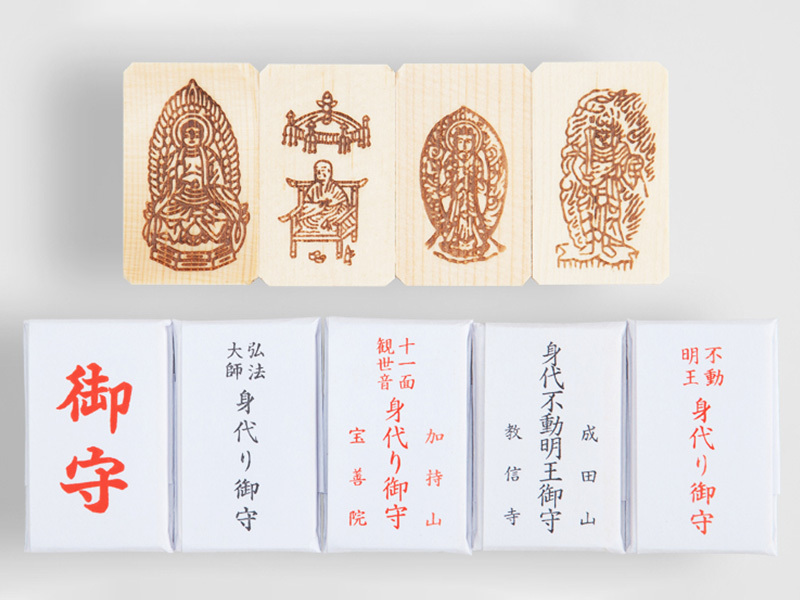 御守
弘法
大師
身代り御守
十一面
観世音
身代り御守
加持山
宝善院
身代不動明王御守
成田山
教信寺
不動
明王
身代り御守